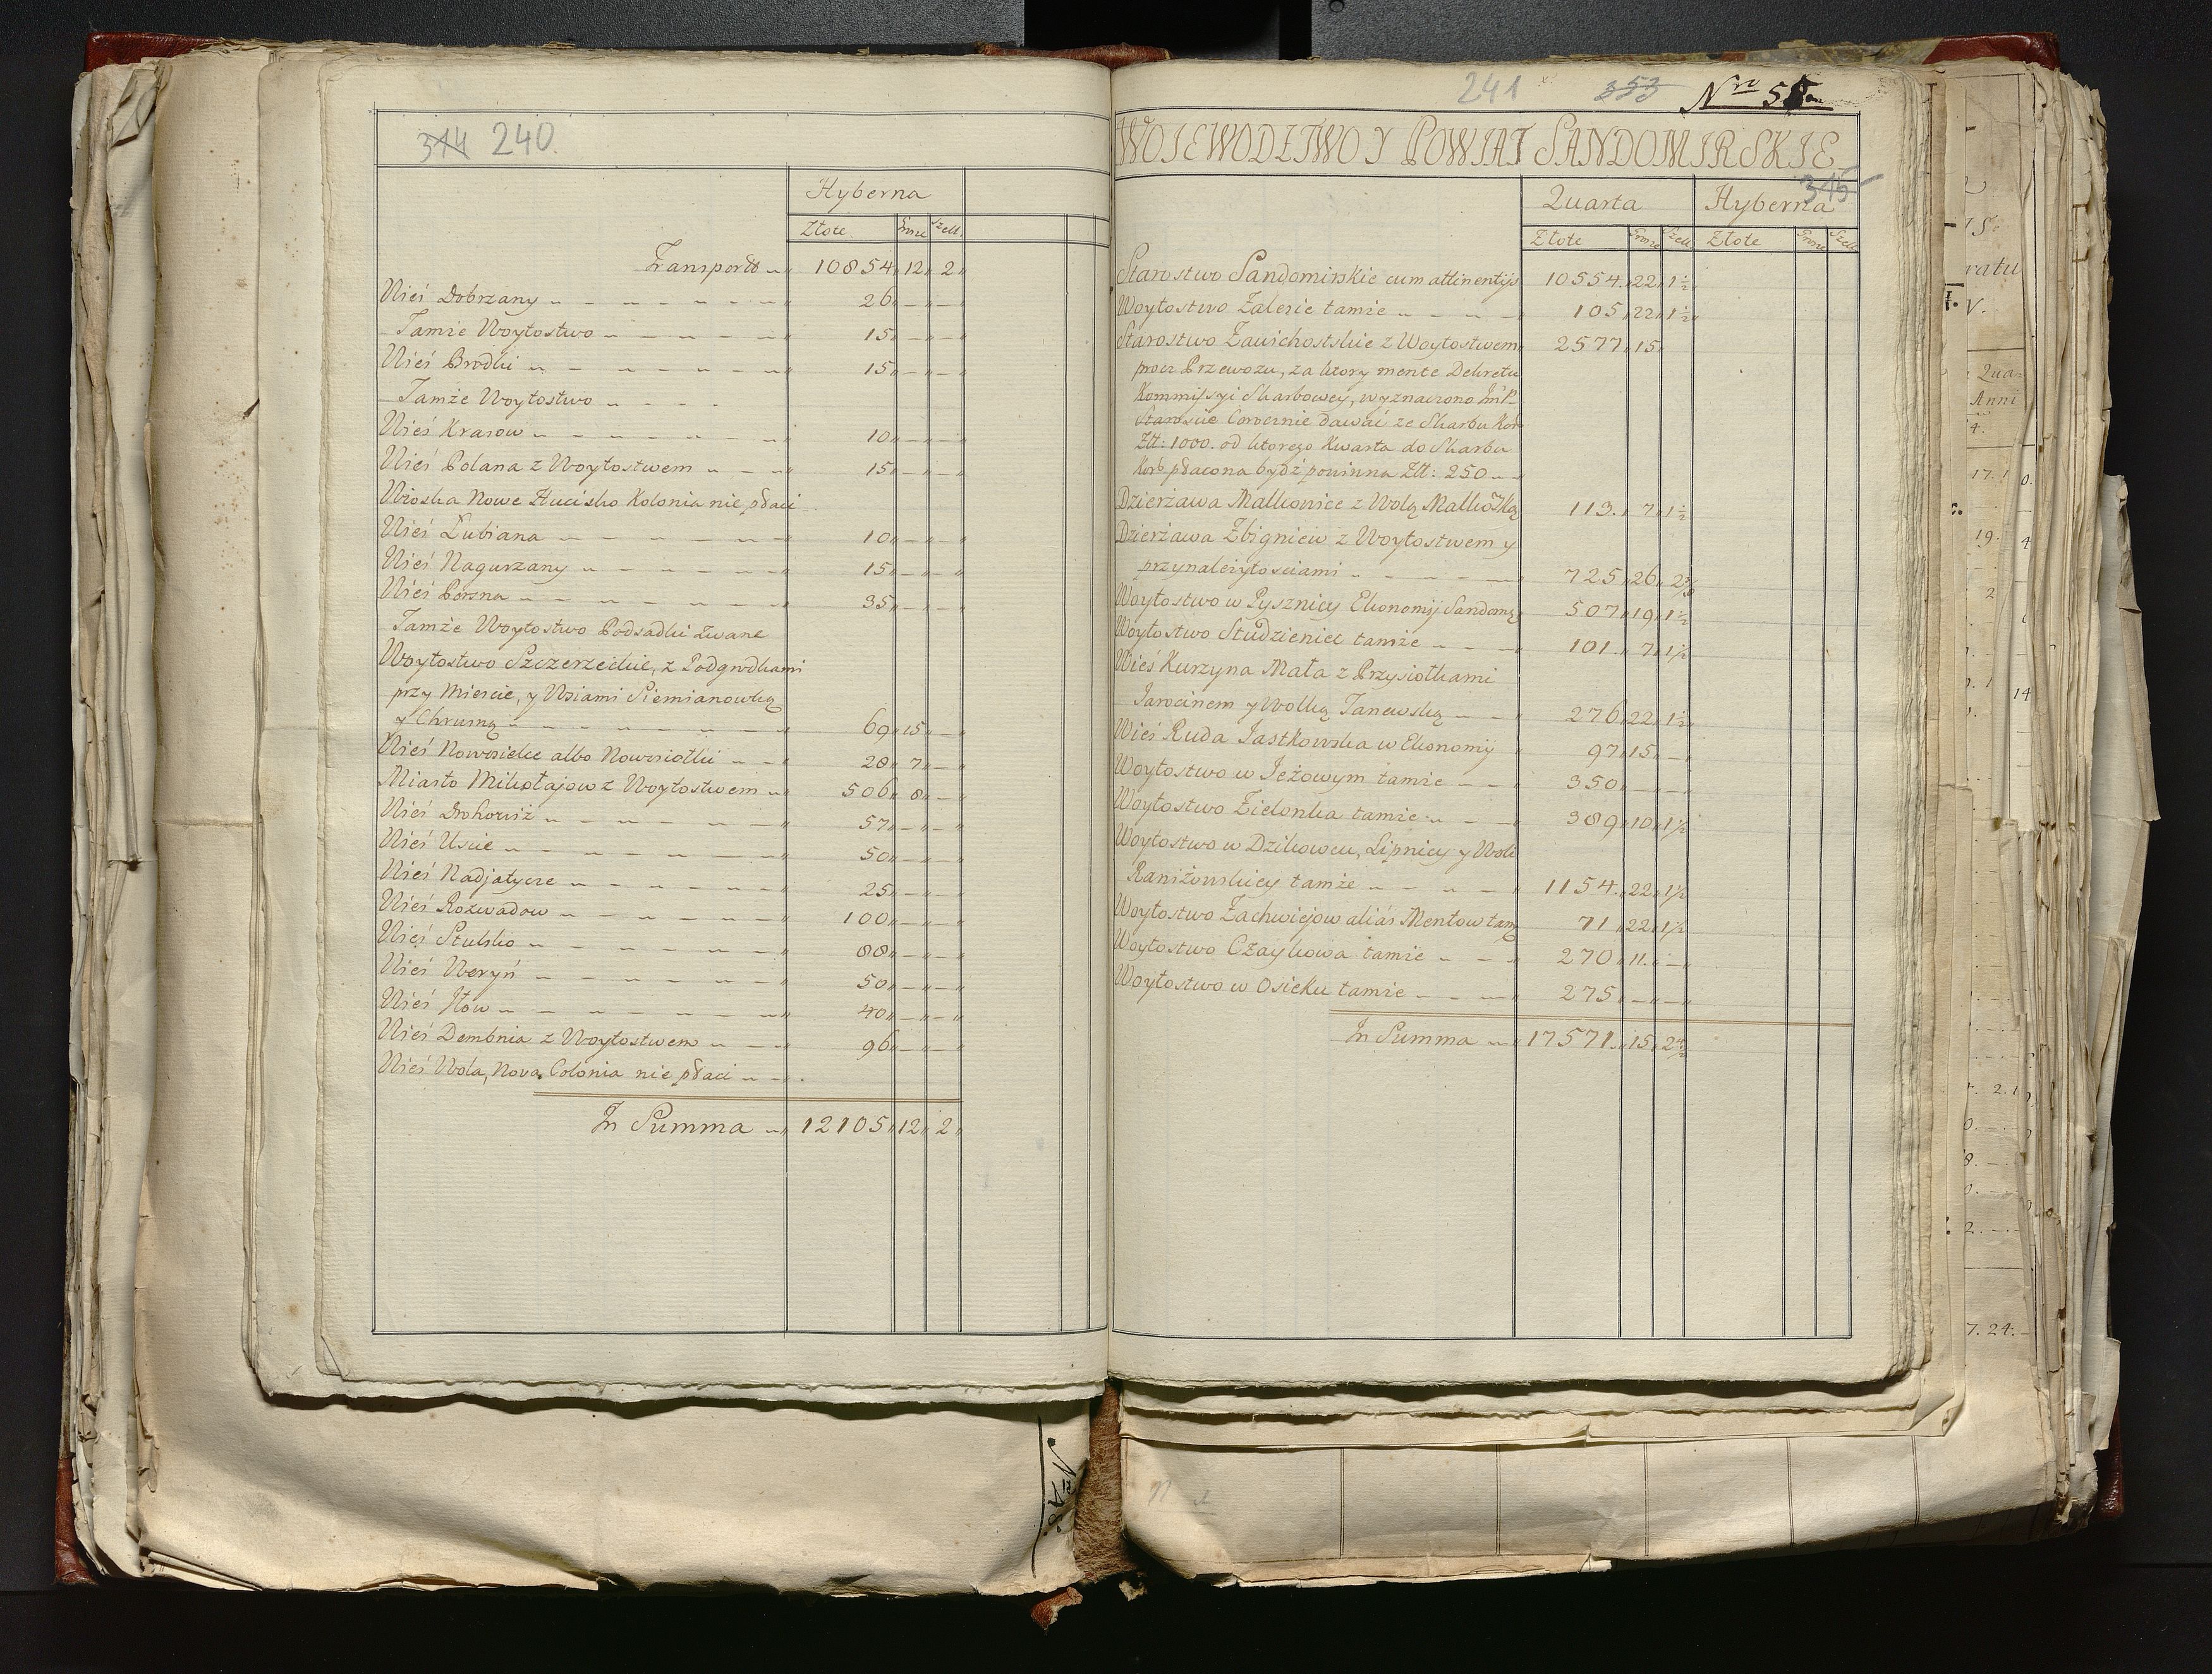 314 240.
Hyberna
Złote Grosze Szell.
Transporto 10854 12 2
Wieś Dobrzany 26 — —
Tamże Woytostwo 15 — —
Wieś Brodki 15 — —
Tamże Woytostwo
Wieś Krasow 10 — —
Wieś Polana z Woytostwem 15 — —
Wioska Nowe Hucisko Kolonia nie płaci
Wieś Lubiana 10 — —
Wieś Nagurzany 15 — —
Wieś Porzna 35 — —
Tamże Woytostwo Podsadki Zwane
Woytostwo Szczerzeckie, z Podgrodkami
przy Miescie, y Wsiami Siemianowką
y Chrusną 69 15 —
Wieś Nowosielce albo Nowosiołki 28 7 —
Miasto Mikołajow z Woytostwem 506 8 —
Wieś Drohowiż 57 — —
Wieś Uście 50 — —
Wieś Nadjatycze 25 — —
Wieś Rozwadow 100 — —
Wieś Stulsko 88 — —
Wieś Weryń 50 — —
Wieś Ilow 40 — —
Wieś Dembnia z Woytostwem 96 — —
Wieś Wola, Nova Colonia nie płaci
In Summa 12105 12 2
241 353 Nro 55
WOIEWODZTWO Y POWIAT SANDOMIRSKIE
315
Quarta Hyberna
Złote Grosze Szell. Złote Grosze Szell.
Starostwo Sandomirskie cum attinentijs 10554. 22 1½
Woytostwo Zalesie tamże 105 22 1½
Starostwo Zawichostskie z Woytostwem 2577 15
procz Przewozu, za ktory mente Dekretu
Kommissyi Skarbowey, wyznaczono Jmć P.
Staroscie Corocznie dawać ze Skarbu Kor
Złł: 1000. od ktorego Kwarta do Skarbu
Kor. płacona bydź powinna Złł: 250
Dzierżawa Malkowice z Wolą Malkowską 113. 7 1½
Dzierżawa Zbigniew z Woytostwem y
przynależytosciami 725 26 2⅖
Woytostwo w Pysznicy Ekonomij Sandom. 507 19 1½
Woytostwo Studzieniec tamże 101. 7 1½
Wieś Kurzyna Mała z Przysiołkami
Jarocinem y Wolką Tanewską 276 22 1½
Wieś Ruda Jastkowska w Ekonomij 97 15 —
Woytostwo w Jeżowym tamże 350 — —
Woytostwo Zielonka tamże 389 10 1½
Woytostwo w Dzikowcu, Lipnicy y Woli
Raniżowskiey tamże 1154. 22 1½
Woytostwo Zachwiejow aliás Mentow tam. 71 22 1½
Woytostwo Czaykowa tamże 270 11. —
Woytostwo w Osieku tamże 275 — —
In Summa 17571. 15 2